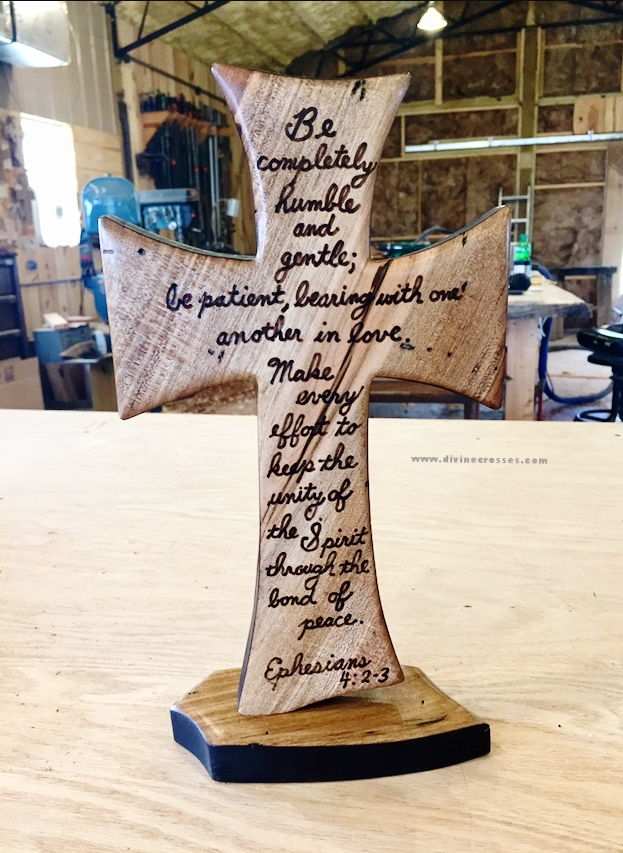 Be
completely
humble
and
gentle;
be patient, bearing with one
another in love.
Make
every
effort to
keep the
unity of
the Spirit
through the
bond of
peace.
Ephesians
4:2-3
www.divinecrosses.com